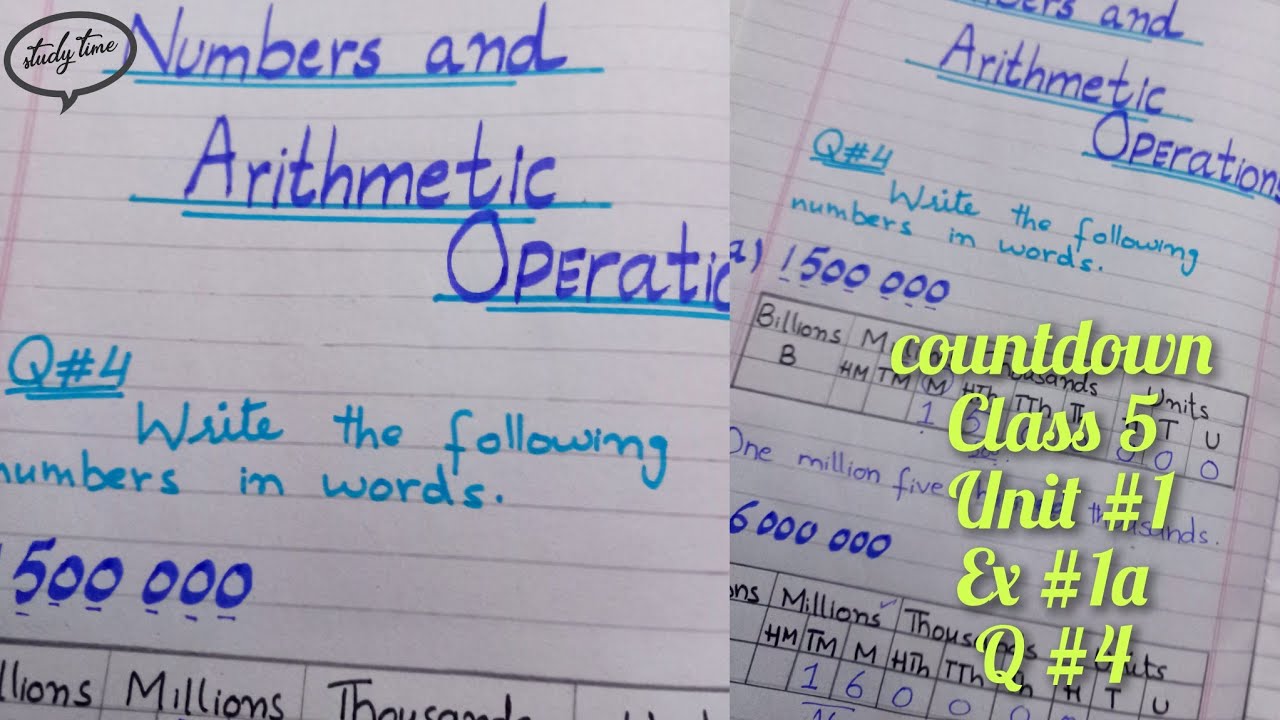 study time
Numbers and
Arithmetic
Operatio
Q#4
Write the following
numbers in words.
500 000
llions Millions Thousands
bers and
Arithmetic
Operations
Q#4
Write the following
numbers in words.
1 500 000
Billions Units
B HM TM M HTh TTh T U
1 0 0
One million five thousands.
6 000 000
ons Millions Thous
HM TM M HTh TTh H T U
1 6 0 0 0
countdown
Class 5
Unit #1
Ex #1a
Q #4